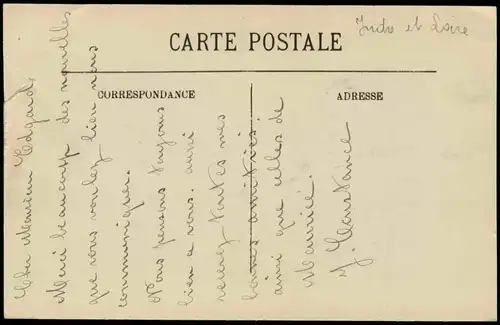 Indre et Loire
CARTE POSTALE
CORRESPONDANCE
ADRESSE
Cher Monsieur Edgard,
Merci beaucoup des nouvelles
que vous voulez bien nous
communiquer.
Nous pensons toujours
bien a vous. aussi
recevez toutes mes
bonnes amitiés
ainsi que celles de
Maurice.
J. Constance